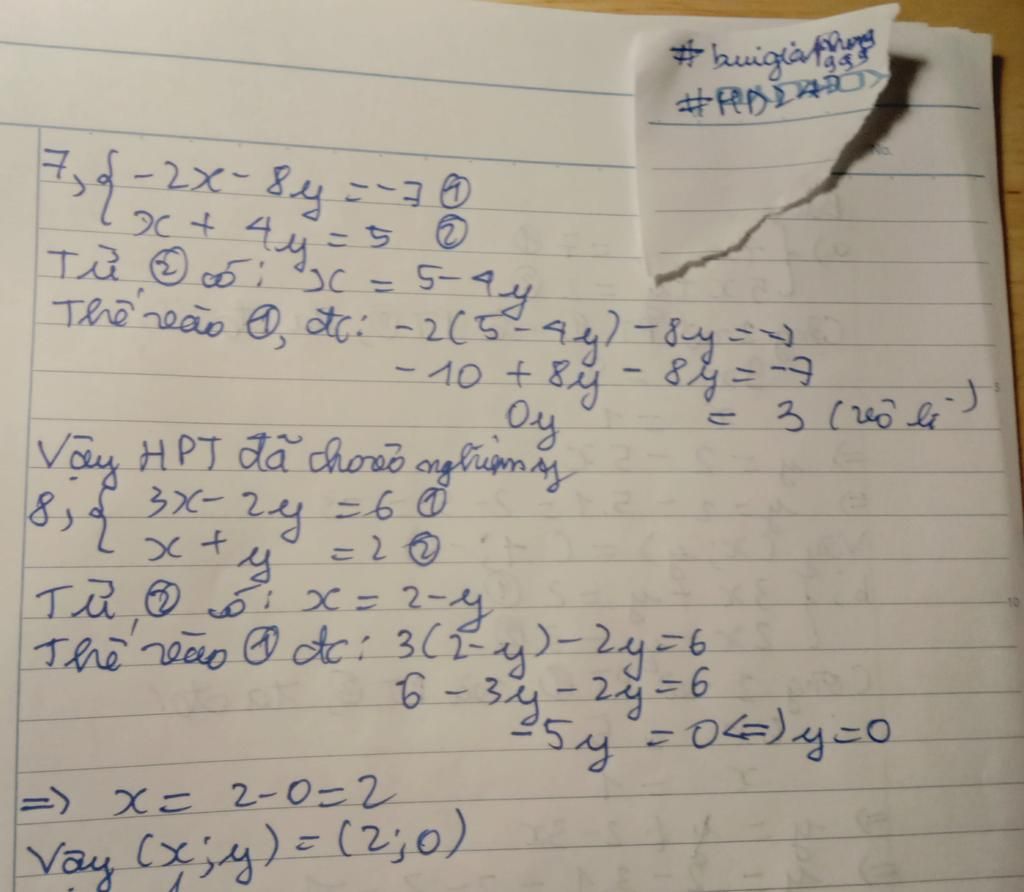 #buigiaphong
999
7, { -2x - 8y = -7 ①
x + 4y = 5 ②
Từ ② có: x = 5 - 4y
Thế vào ①, đc: -2(5 - 4y) - 8y = -7
-10 + 8y - 8y = -7
0y = 3 (vô lí)
Vậy HPT đã cho nghiệm
8, { 3x - 2y = 6 ①
x + y = 2 ②
Từ ② có: x = 2 - y
Thế vào ① đc: 3(2 - y) - 2y = 6
6 - 3y - 2y = 6
-5y = 0 <=> y = 0
=> x = 2 - 0 = 2
Vậy (x; y) = (2; 0)